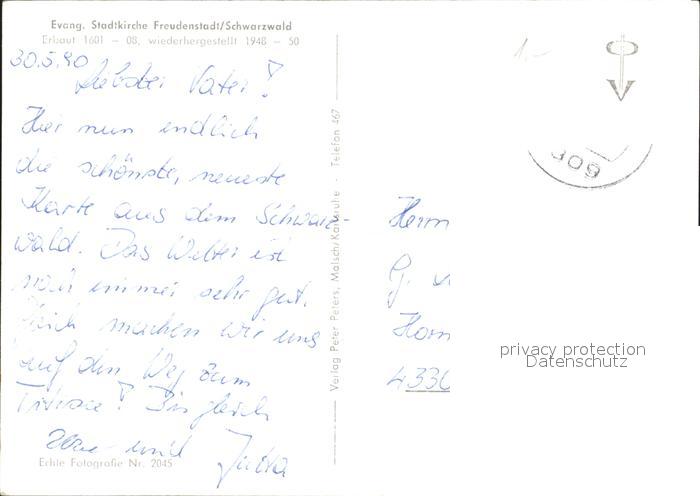 Evang. Stadtkirche Freudenstadt/Schwarzwald
Erbaut 1601 – 08, wiederhergestellt 1948 – 50
30.5.90
Liebster Vater!
Hier nun endlich
die schönste, neueste
Karte aus dem Schwarz-
wald. Das Wetter ist
noch immer sehr gut.
Gleich machen wir uns
auf den Weg zum
Titisee! Bis gleich
und Jutta
Echte Fotografie Nr. 2045
Verlag Peter Peters, Malsch/Karlsruhe - Telefon 467
1.-
Herrn
G.
Horn
4330
privacy protection
Datenschutz